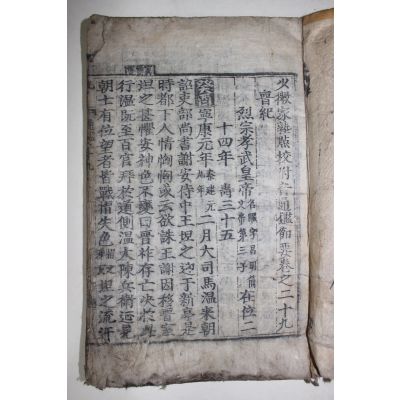 少微家塾點校附音通鑑節要卷之二十九
晉紀
烈宗孝武皇帝名曜字昌明簡文帝第三子在位二
十四年 壽三十五
癸酉寧康元年秦建元九年二月大司馬溫來朝
詔吏部尚書謝安侍中王坦之迎于新亭是
時都下人情恟恟或云欲誅王謝因移晉室
坦之甚懼安神色不變曰晉祚存亡決於此
行溫旣至百官拜於道側溫大陳兵衛延見
朝士有位望者皆戰慴失色坦之流汗